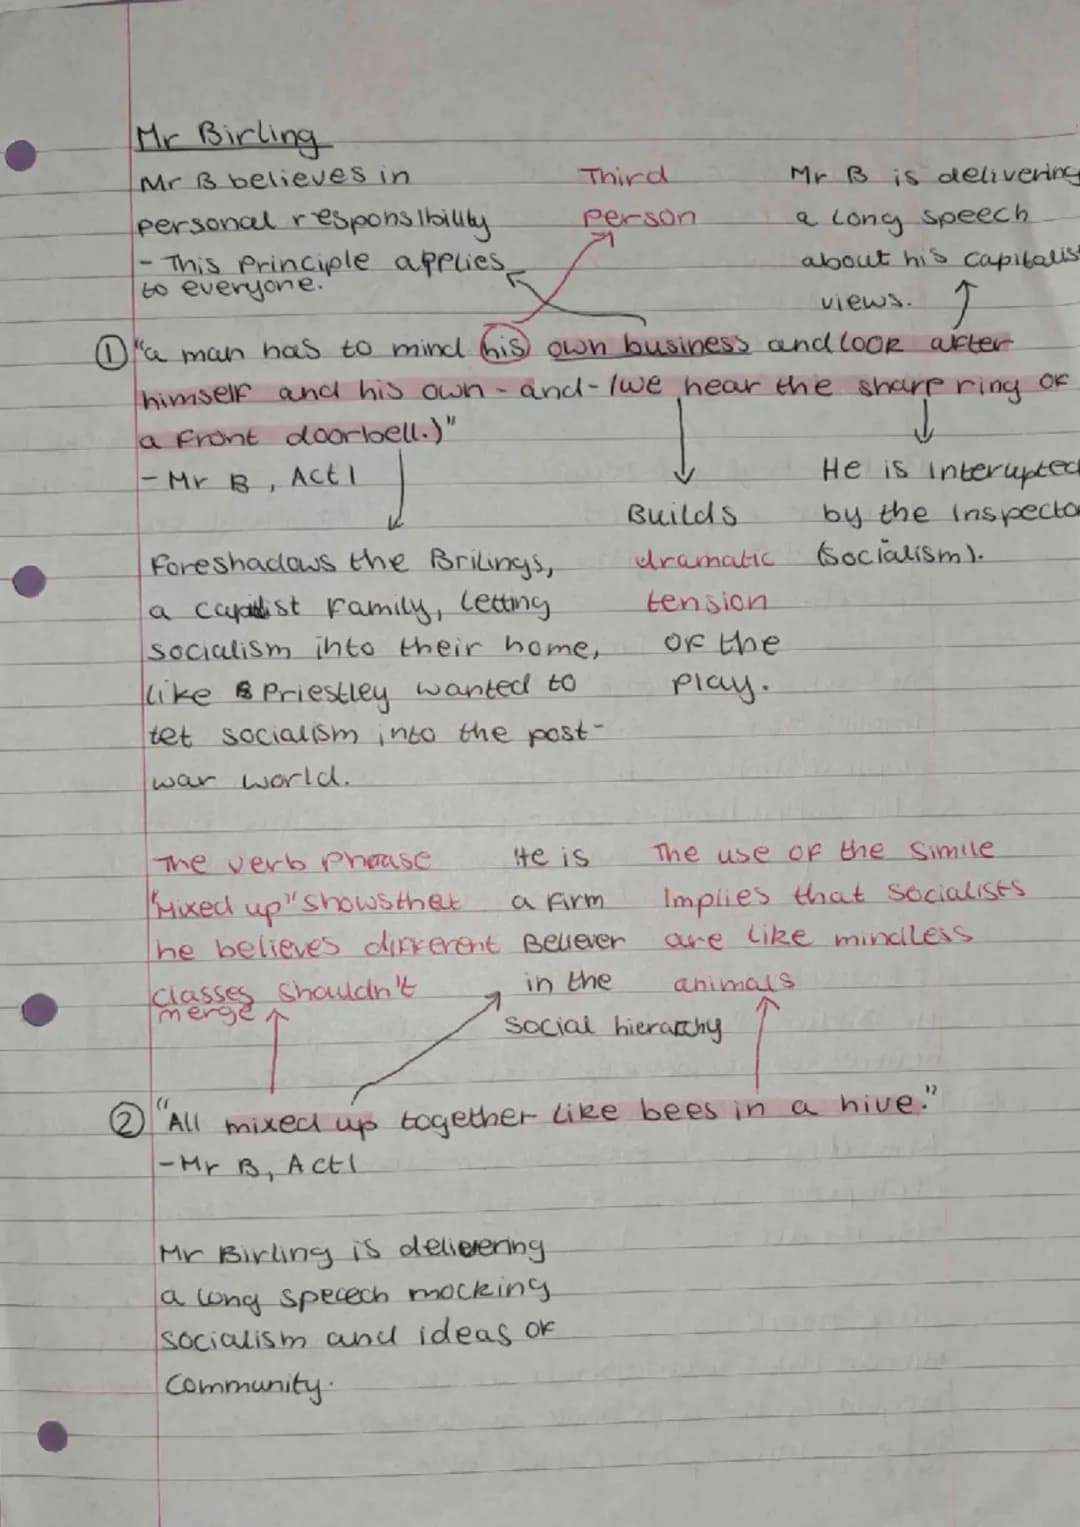 Mr Birling
Mr B believes in
personal responsibility
- This Principle applies
to everyone.
Third
person
Mr B is delivering
a long speech
about his capitalist
views.
① "a man has to mind his own business and look after
himself and his own - and - (we hear the sharp ring of
a front doorbell.)"
- Mr B, Act 1
Foreshadows the Brilings,
a capitalist family, letting
socialism into their home,
like Priestley wanted to
let socialism into the post-
war world.
Builds
dramatic
tension
of the
play.
He is interupted
by the Inspector
(socialism).
The verb phrase
"Mixed up" shows that
he believes different
classes shouldn't
merge
He is
a firm
Believer
in the
social hierarchy
The use of the simile
Implies that socialists
are like mindless
animals
② "All mixed up together like bees in a hive."
- Mr B, Act 1
Mr Birling is delievering
a long speech mocking
socialism and ideas of
community.